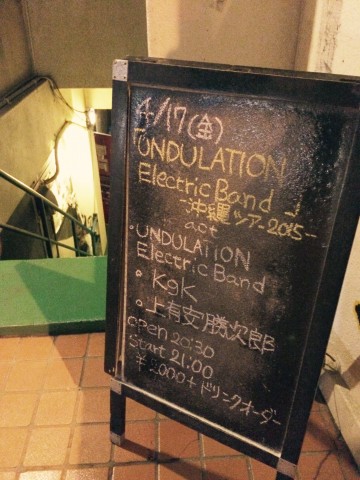 4/17(金)
「UNDULATION
Electric Band」
-沖縄ツアー2015-
act
・UNDULATION
Electric Band
・KgK
・上有安勝次郎
open 20:30
Start 21:00
¥2,000+ドリンクオーダー